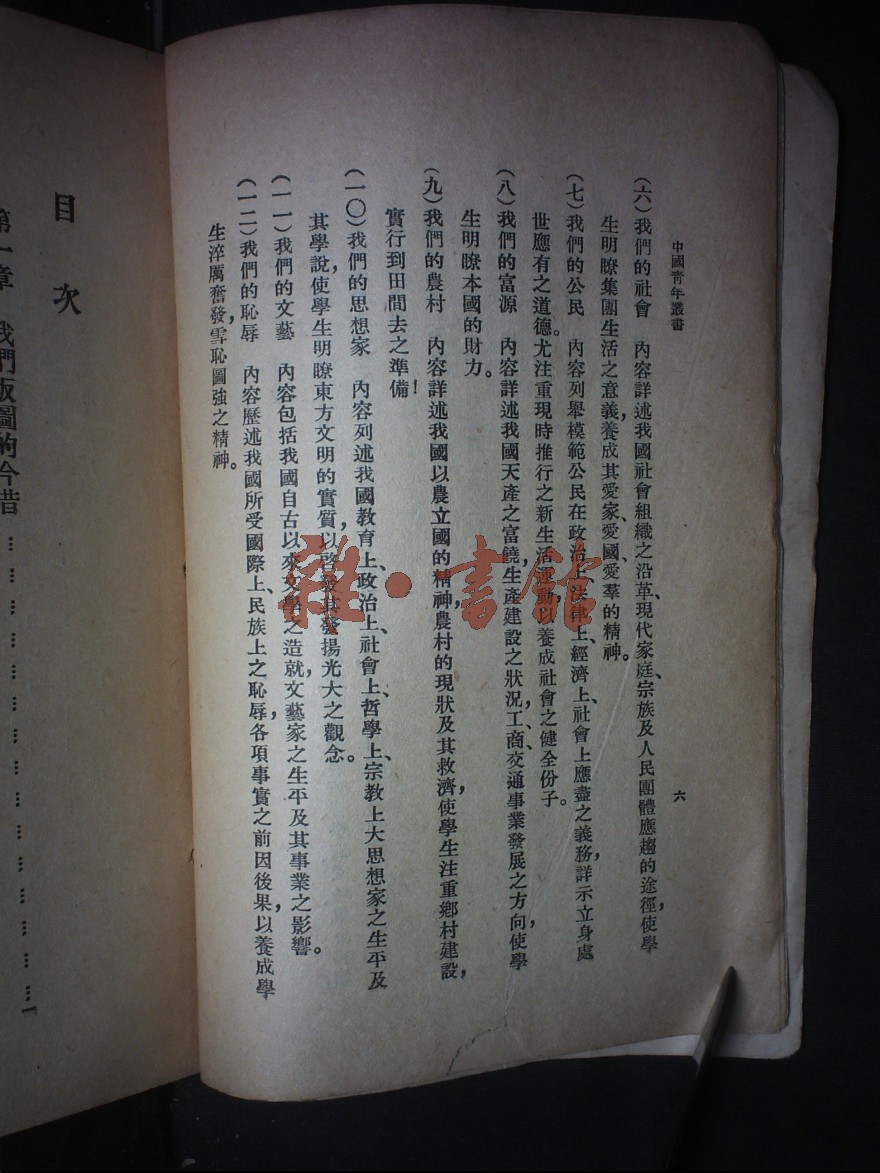 中國靑年叢書
六
(六)我們的社會　內容詳述我國社會組織之沿革、現代家庭、宗族及人民團體應趨的途徑,使學
生明瞭集團生活之意義,養成其愛家、愛國、愛羣的精神。
(七)我們的公民　內容列舉模範公民在政治上、法律上、經濟上、社會上應盡之義務,詳示立身處
世應有之道德。尤注重現時推行之新生活運動,以養成社會之健全份子。
(八)我們的富源　內容詳述我國天產之富饒,生產建設之狀況,工、商、交通事業發展之方向,使學
生明瞭本國的財力。
(九)我們的農村　內容詳述我國以農立國的精神,農村的現狀及其救濟,使學生注重鄕村建設,
實行到田間去之準備!
(一〇)我們的思想家　內容列述我國教育上、政治上、社會上、哲學上、宗教上大思想家之生平及
其學說,使學生明瞭東方文明的實質,以啓發其發揚光大之觀念。
(一一)我們的文藝　內容包括我國自古以來文學之造就,文藝家之生平及其事業之影響。
(一二)我們的恥辱　內容歷述我國所受國際上、民族上之恥辱,各項事實之前因後果,以養成學
生淬厲奮發,雪恥圖強之精神。
目次
第一章　我們版圖的今昔……………………………………
雜·書館